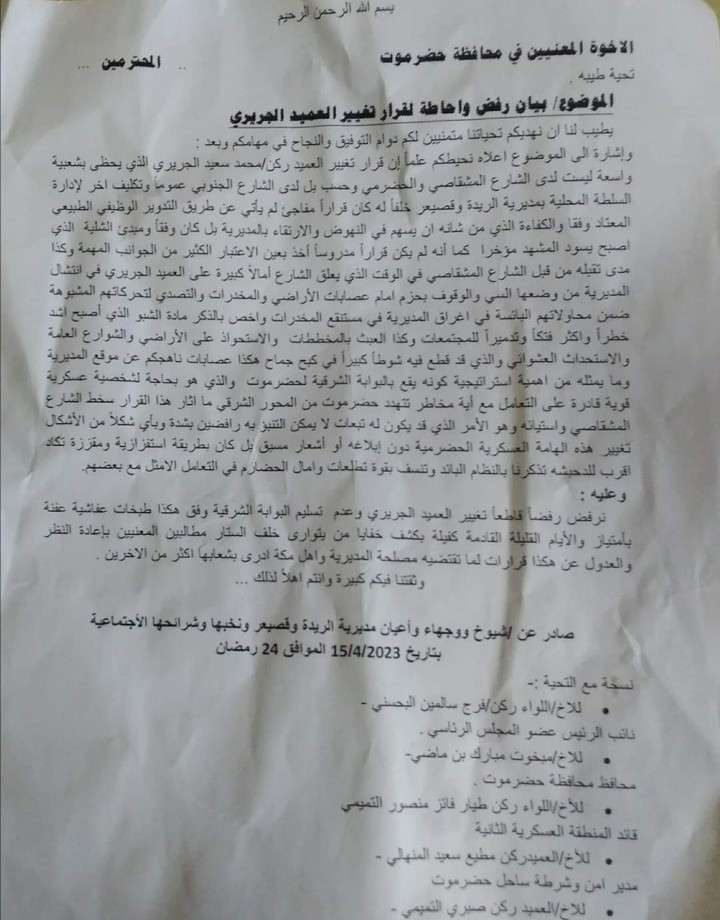 بسم الله الرحمن الرحيم
الاخوة المعنيين في محافظة حضرموت .. المحترمين ...
تحية طيبه .
الموضوع/ بيان رفض واحاطة لقرار تغيير العميد الجريري
يطيب لنا ان نهديكم تحياتنا متمنيين لكم دوام التوفيق والنجاح في مهامكم وبعد :
وإشارة الى الموضوع اعلاه نحيطكم علماً إن قرار تغيير العميد ركن/محمد سعيد الجريري الذي يحظى بشعبية
واسعة ليست لدى الشارع المشقاصي والحضرمي وحسب بل لدى الشارع الجنوبي عموماً وتكليف اخر لإدارة
السلطة المحلية بمديرية الريدة وقصيعر خلفاً له كان قراراً مفاجئ لم يأتي عن طريق التدوير الوظيفي الطبيعي
المعتاد وفقا والكفاءة الذي من شانه ان يسهم في النهوض والارتقاء بالمديرية بل كان وفقاً ومبدئ الشلية الذي
اصبح يسود المشهد مؤخرا كما أنه لم يكن قراراً مدروساً أخذ بعين الاعتبار الكثير من الجوانب المهمة وكذا
مدى تقبله من قبل الشارع المشقاصي في الوقت الذي يعلق الشارع أمالاً كبيرة على العميد الجريري في انتشال
المديرية من وضعها السي والوقوف بحزم امام عصابات الأراضي والمخدرات والتصدي لتحركاتهم المشبوهة
ضمن محاولاتهم اليائسة في اغراق المديرية في مستنقع المخدرات واخص بالذكر مادة الشبو الذي أصبح اشد
خطراً واكثر فتكاً وتدميراً للمجتمعات وكذا العبث بالمخططات والاستحواذ على الأراضي والشوارع العامة
والاستحداث العشوائي والذي قد قطع فيه شوطاً كبيراً في كبح جماح هكذا عصابات ناهجكم عن موقع المديرية
وما يمثله من اهمية استراتيجية كونه يقع بالبوابة الشرقية لحضرموت والذي هو بحاجة لشخصية عسكرية
قوية قادرة على التعامل مع أية مخاطر تتهدد حضرموت من المحور الشرقي ما اثار هذا القرار سخط الشارع
المشقاصي واستيائه وهو الأمر الذي قد يكون له تبعات لا يمكن التنبؤ به رافضين بشدة وبأي شكلاً من الأشكال
تغيير هذه الهامة العسكرية الحضرمية دون إبلاغه أو أشعار مسبق بل كان بطريقة استفزازية ومقززة تكاد
اقرب للدحبشه تذكرنا بالنظام البائد وتنسف بقوة تطلعات وامال الحضارم في التعامل الامثل مع بعضهم.
وعليه :
نرفض رفضاً قاطعاً تغيير العميد الجريري وعدم تسليم البوابة الشرقية وفق هكذا طبخات عفاشية عفنة
بأمتياز والأيام القليلة القادمة كفيلة بكشف خفايا من يتوارى خلف الستار مطالبين المعنيين بإعادة النظر
والعدول عن هكذا قرارات لما تقتضيه مصلحة المديرية واهل مكة ادرى بشعابها اكثر من الاخرين .
وثقتنا فيكم كبيرة وانتم اهلاً لذلك ...
صادر عن /شيوخ ووجهاء وأعيان مديرية الريدة وقصيعر ونخبها وشرائحها الأجتماعية
بتاريخ 15/4/2023 الموافق 24 رمضان
نسخة مع التحية :-
• للاخ/اللواء ركن/فرج سالمين البحسني -
نائب الرئيس عضو المجلس الرئاسي .
• للاخ/مبخوت مبارك بن ماضي-
محافظ محافظة حضرموت .
• للأخ/اللواء ركن طيار فائز منصور التميمي
قائد المنطقة العسكرية الثانية
• للأخ/العميدركن مطيع سعيد المنهالي -
مدير امن وشرطة ساحل حضرموت
• للاخ/العميد ركن صبري التميمي -